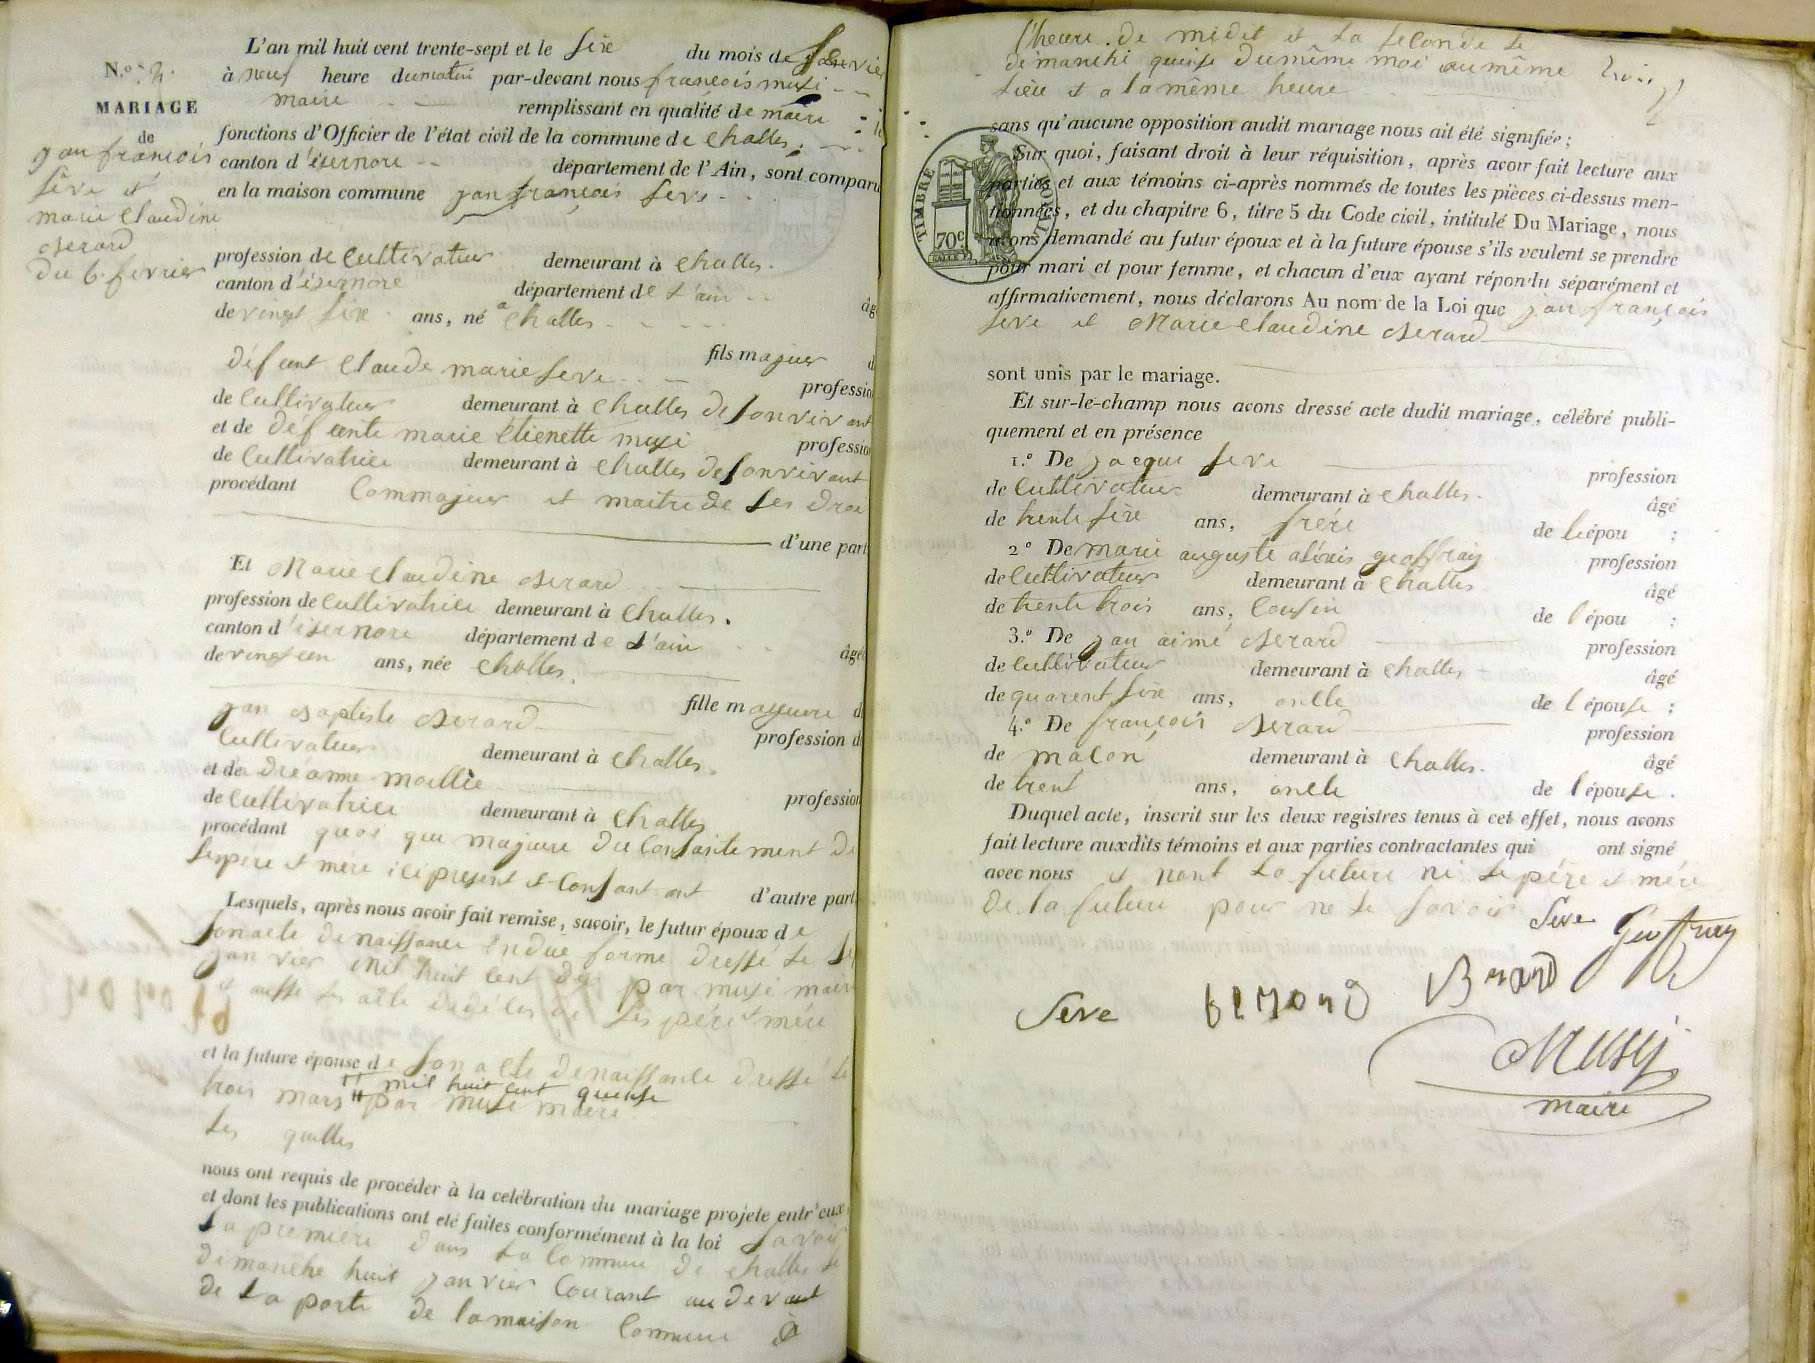 N.o 2.
MARIAGE
de
jan françois
sève et
marie Claudine
Berard
du 6. fevrier
L'an mil huit cent trente-sept et le six du mois de
à neuf heure du matin par-devant nous françois muzi
maire remplissant en qualité de maire
fonctions d'Officier de l'état civil de la commune de challes.
canton d'isernore département de l'Ain, sont comparu
en la maison commune jan françois seve
profession de cultivateur demeurant à challes.
canton d'isernore département de l'ain
de vingt six ans, né a challes
fils majeur d
défeunt claude marie seve professio
de cultivateur demeurant à challes de son vivant
et de defeunte marie étienette muzi professio
de cultivatrice demeurant à challes de son vivant
procédant commajeur et maitre de ses droi
d'une part
Et Marie claudine Berard
profession de cultivatrice demeurant à challes.
canton d'isernore département de l'ain âgé
de vingt un ans, née challes.
fille mageure d
jan Baptiste Berard profession d
cultivateur demeurant à challes.
et de
de cultivatrice demeurant à challes profession
procédant quoi que majeure du consantement de
ses père et mère ici présent et consantant d'autre part
Lesquels, après nous avoir fait remise, savoir, le futur époux de
son acte de naissance en due forme dressé le
janvier mil huit cent dix par muzi maire
et ausse les acte de décès de ses père et mére
et la future épouse de son acte de naissance dressé le
trois mars mil huit cent quinse par muzi maire
les quelles
nous ont requis de procéder à la celébration du mariage projeté entr'eux
et dont les publications ont eté faites conformément à la loi savoir
la première dans la commune de challes le
dimanche huit janvier courant au devant
de la porte de la maison commune à
l'heure de midit et la seconde le
dimanche quinse du même moi au même
lieu et a la même heure
sans qu'aucune opposition audit mariage nous ait été signifiée;
Sur quoi, faisant droit à leur réquisition, après avoir fait lecture aux
parties et aux témoins ci-après nommés de toutes les pièces ci-dessus men-
tionnées, et du chapitre 6, titre 5 du Code civil, intitulé Du Mariage, nous
avons demandé au futur époux et à la future épouse s'ils veulent se prendre
pour mari et pour femme, et chacun d'eux ayant répondu séparément et
affirmativement, nous déclarons Au nom de la Loi que jan françois
seve et Marie claudine Berard
TIMBRE ROYAL
70c
sont unis par le mariage.
Et sur-le-champ nous avons dressé acte dudit mariage, célébré publi-
quement et en présence
1.o De jacque seve profession
de cultivateur demeurant à challes. âgé
de trente six ans, frére de l'épou :
2.o De marie auguste geoffray profession
de cultivateur demeurant à challes âgé
de trente trois ans, cousin de l'épou :
3.o De jan aimé Berard profession
de cultivateur demeurant à challes âgé
de quarent six ans, oncle de l'épouse ;
4.o De françois Berard profession
de maçon demeurant à challes. âgé
de trent ans, oncle de l'épouse.
Duquel acte, inscrit sur les deux registres tenus à cet effet, nous avons
fait lecture auxdits témoins et aux parties contractantes qui ont signé
avec nous et nont la future ni le père et mére
de la future pour ne le savoir
Seve Geoffray
Seve Berard
Muzij
maire